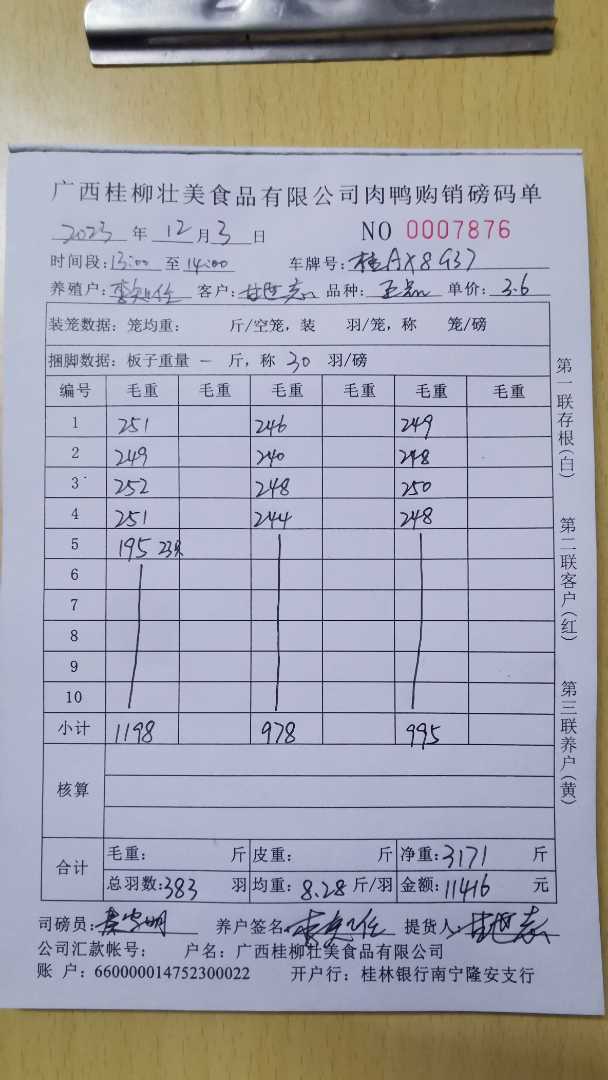 广西桂柳壮美食品有限公司肉鸭购销磅码单
2023 年 12 月 3 日 NO 0007876
时间段:13:00 至 14:00 车牌号:桂AX8G37
养殖户: 客户: 品种: 单价:3.6
装笼数据:笼均重: 斤/空笼,装 羽/笼,称 笼/磅
捆脚数据:板子重量 — 斤,称 30 羽/磅
编号 毛重 毛重 毛重 毛重 毛重 毛重
1 251 246 249
2 249 240 248
3 252 248 250
4 251 244 248
5 195 23只
6
7
8
9
10
小计 1198 978 995
核算
合计 毛重: 斤 皮重: 斤 净重:3171 斤
总羽数:383 羽 均重:8.28 斤/羽 金额:11416 元
司磅员: 养户签名: 提货人:
公司汇款帐号: 户名:广西桂柳壮美食品有限公司
账 户:660000014752300022 开户行:桂林银行南宁隆安支行
第一联存根(白)
第二联客户(红)
第三联养户(黄)